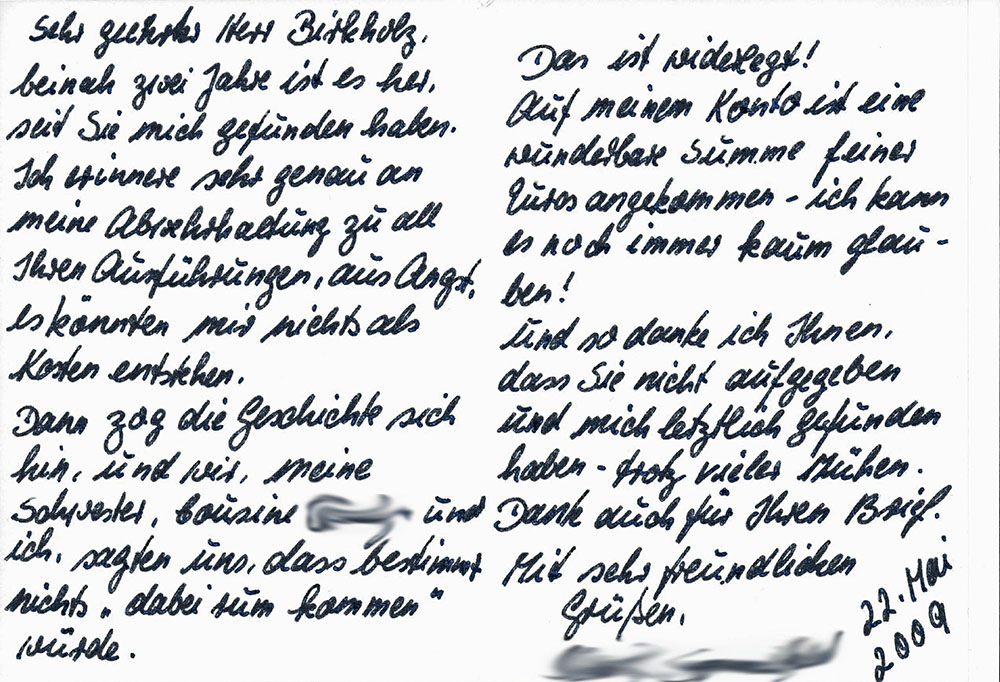 Sehr geehrter Herr Birkholz,
beinah zwei Jahre ist es her,
seit Sie mich gefunden haben.
Ich erinnere sehr genau an
meine Abwehrhaltung zu all
Ihren Ausführungen, aus Angst,
es könnten mir nichts als
Kosten entstehen.
Dann zog die Geschichte sich
hin, und wir, meine
Schwester, Cousine und
ich, sagten uns, dass bestimmt
nichts „dabei rum kommen"
würde.
Das ist widerlegt!
Auf meinem Konto ist eine
wunderbare Summe feiner
Euros angekommen - ich kann
es noch immer kaum glau-
ben!
Und so danke ich Ihnen,
dass Sie nicht aufgegeben
und mich letztlich gefunden
haben - trotz vieler Mühen.
Dank auch für Ihren Brief.
Mit sehr freundlichen
Grüßen,
22. Mai
2009